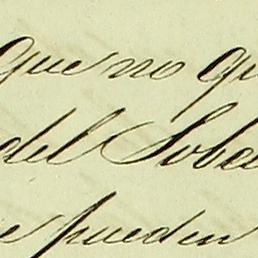 que no qu
del Soba
e pueden